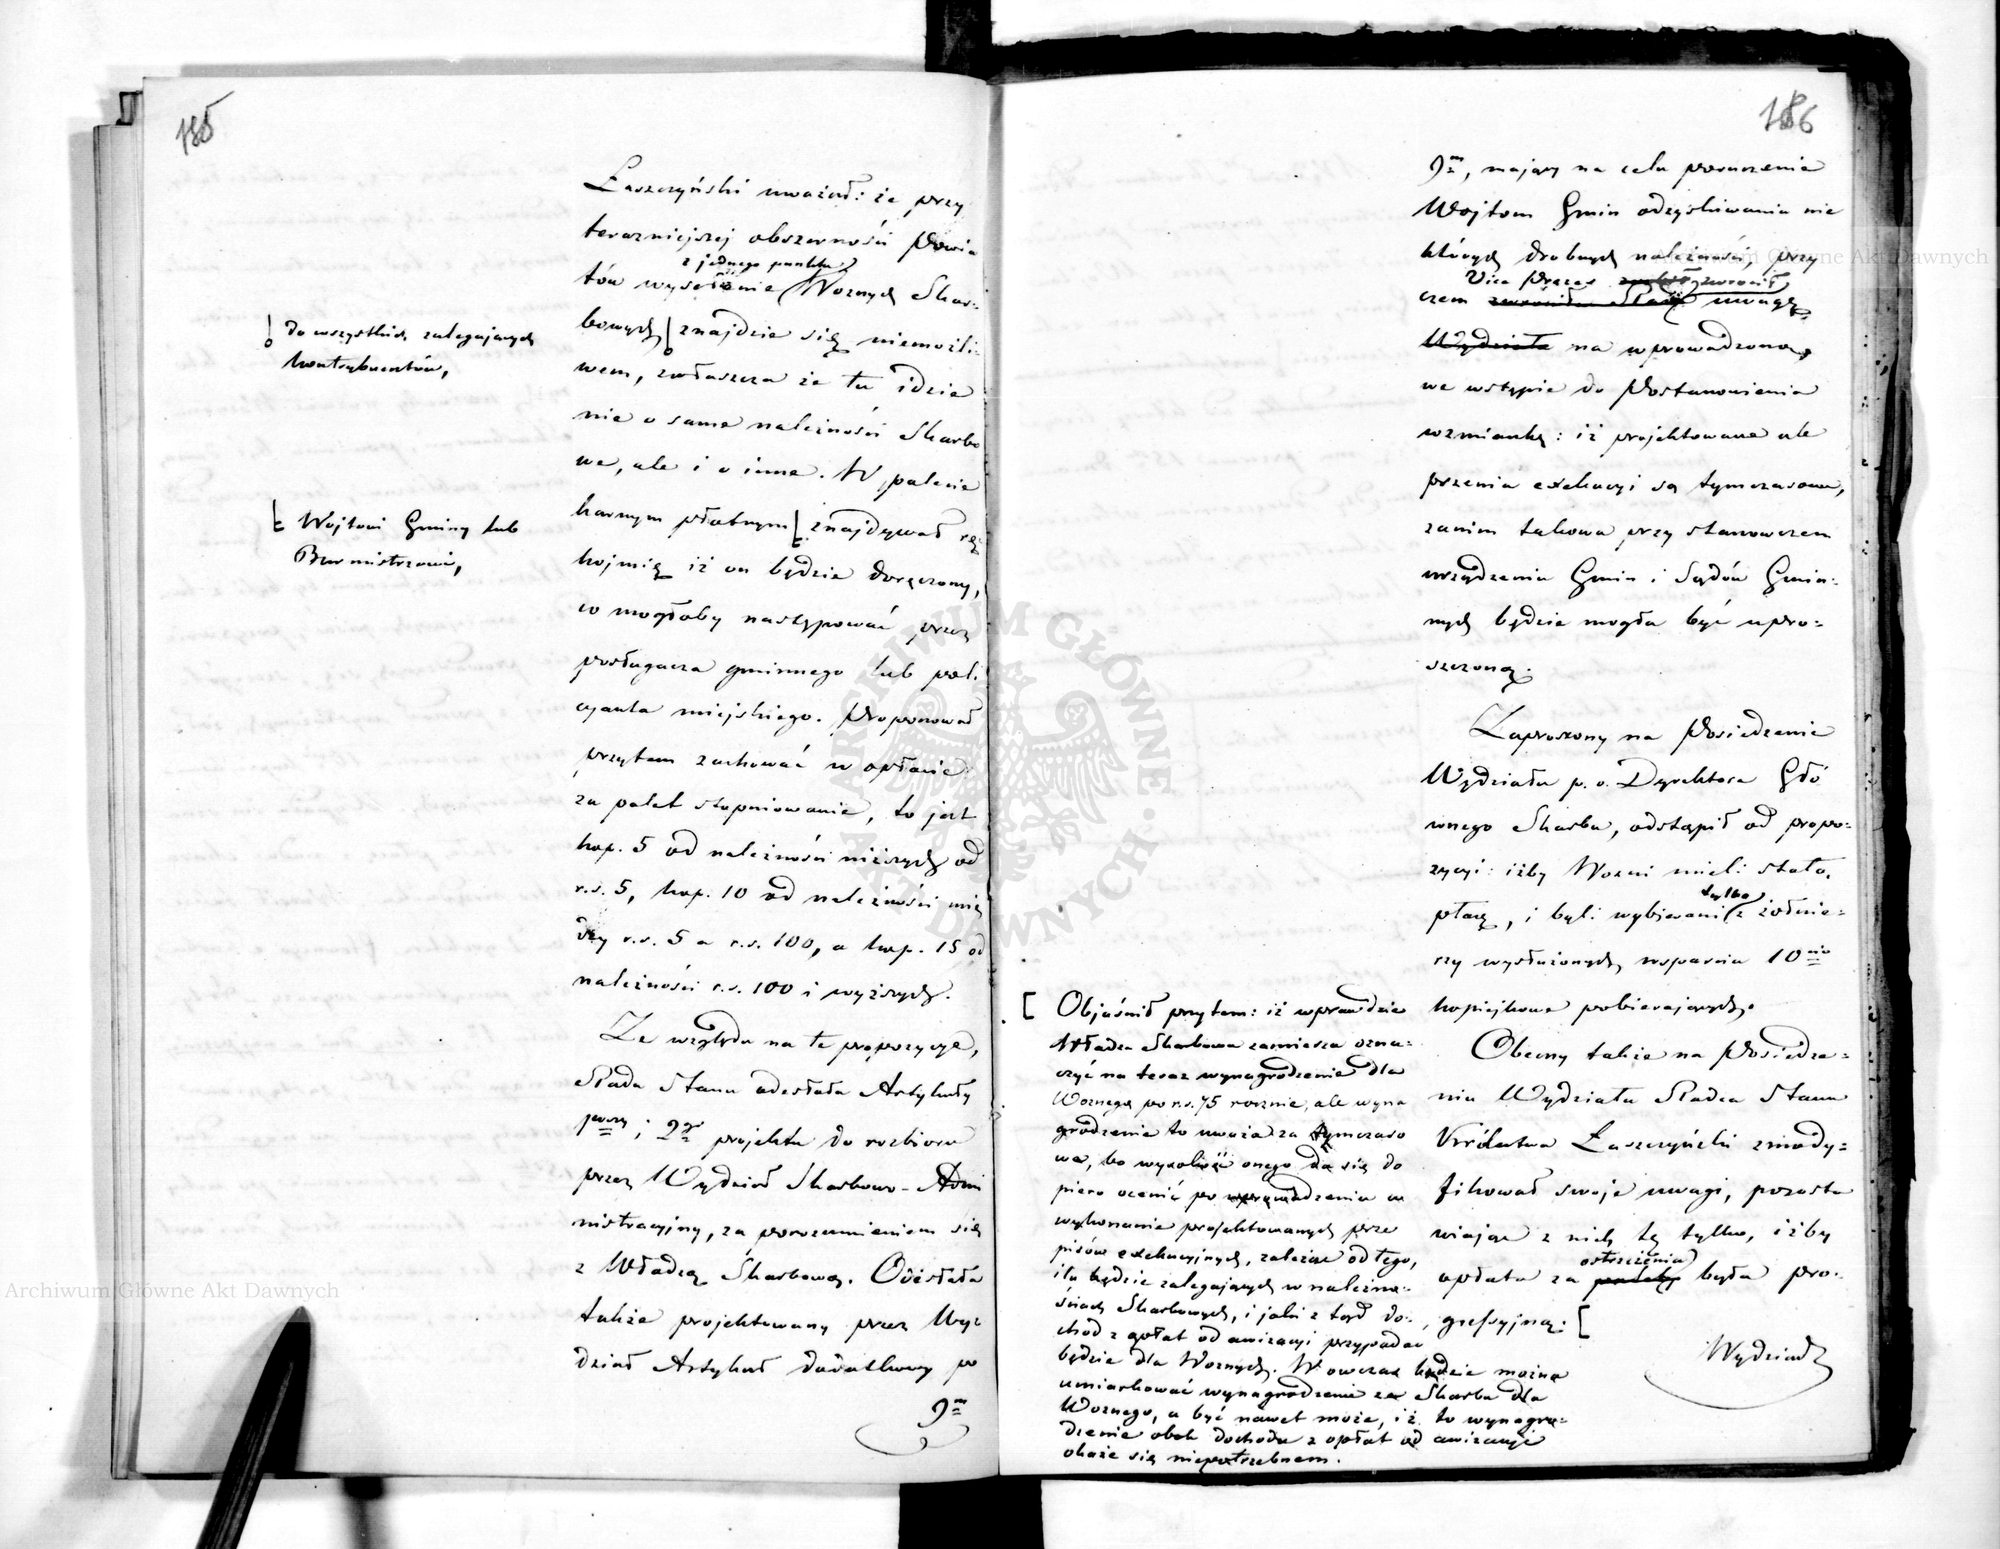 185
Łaszczyński uważał: że przy
teraźniejszej obszerności Powia
z jednego punktu
tów wysełanie Woznych Skar-
bowych znajdzie się niemożli-
do wszystkich zalegających
kontrybuentów,
wem, zwłaszcza że tu idzie
nie o same należności Skarbo
we, ale i o inne. W palecie
karnym płatnym znajdywał rę
Wojtowi Gminy lub
Burmistrzowi,
kojmię iż on będzie doręczony,
co mogłoby następować przez
posługacza gminnego lub poli
cyanta miejskiego. Proponował
przytem zachować w opłacie
za palet stopniowanie, to jest
kop. 5 od należności niższych od
r.s. 5, kop. 10 od należności mię
dzy r.s. 5 a r.s. 100, a kop. 15 od
należności r.s. 100 i wyższych.
Ze względu na te propozycye,
Rada Stanu odesłała Artykuły
pwszy i 2gi projektu do rozbioru
przez Wydział Skarbowo-Admi
nistracyjny, za porozumieniem się
z Władzą Skarbową. Odesłała
także projektowany przez Wy-
dział Artykuł dodatkowy po
9m
186
9m, mający na celu poruczenie
Wojtom Gmin odzyskiwania nie
których drobnych należności, przy
Vice Prezes zwrócił
czem zwróciła Rada uwagę
Wydziału na wprowadzoną,
we wstępie do Postanowienia
wzmiankę: iż projektowane ule
pszenia exekucyi są tymczasowe,
zanim takowa przy stanowczem
urządzeniu Gmin i Sądów Gmin-
nych będzie mogła być upro-
szczoną.
Zaproszony na Posiedzenie
Wydziału p. o. Dyrektora Głó
wnego Skarbu, odstąpił od propo-
zycyi: iżby Wozni mieli stałą
tylko
płacę, i byli wybierani z żołnie-
rzy wysłużonych, wsparcia 10cio
kopiejkowe pobierających.
Obecny także na Posiedze-
niu Wydziału Radca Stanu
Królestwa Łaszczyński zmody-
fikował swoje uwagi, pozosta
wiając z nich tę tylko, iżby
ostrzeżenia
opłata za palety była pro-
gressyjną.
Wydział
Objaśnił przytem: iż wprawdzie
Władza Skarbowa zamierza ozna-
czyć na teraz wynagrodzenie dla
Woznego po r.s. 75 rocznie, ale wyna
grodzenie to uważa za tymczaso
we, bo wysokość onego da się do
piero ocenić po wprowadzeniu w
wykonanie projektowanych prze
pisów exekucyjnych, zależąc od tego,
ilu będzie zalegających w należno-
ściach Skarbowych, i jaki z tąd do-
chod z opłat od awizacyi przypadać
będzie dla Woznych. W owczas będzie można
umiarkować wynagrodzenie ze Skarbu dla
Woznego, a być nawet może, iż to wynagro-
dzenie obok dochodu z opłat od awizacyi
okaże się niepotrzebnem.
Archiwum Główne Akt Dawnych
Archiwum Główne Akt Dawnych
ARCHIWUM GŁÓWNE AKT DAWNYCH